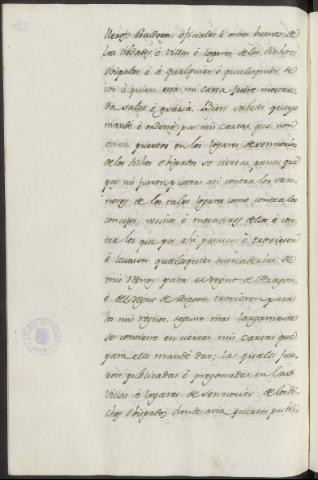 é otros buenos de
las Cibdades, é Villas é logares de los dichos
Obispados é á qualquier ó qualesquier de
vos á quien esta mi carta fuere mostra-
da salud é gracia. Bien sabedes que yo
mandé é ordené por mis cartas que non
oviese puertos en los logares de sennorios
de los dichos Obispados so ciertas penas que
por mi fueron puestas asi contra los sen-
nores de los tales logares como contra los
concejos, vecinos é moradores dellos é con-
tra los que por ahi pasasen é troxiesen
é levasen qualesquier mercadurias de
mis regnos para el regno de Aragon,
é del regno de Aragon troxieren para
los mis regnos, segunt mas largamente
se contiene en ciertas mis cartas que
para ello mandé dar; las quales fue-
ron publicadas é pregonadas en las
Villas é logares de sennorios de los di-
chos Obispados donde avia puertos publi-